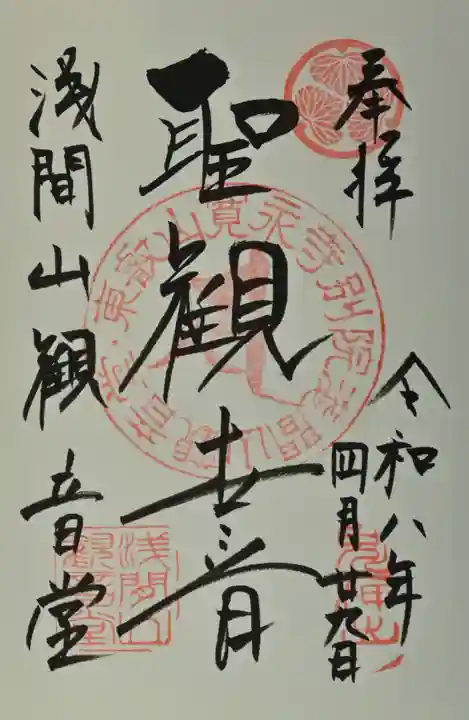 奉拝
令和八年
四月廿九日
聖観世音
浅間山観音堂
東叡山寛永寺別院浅間山観音堂
浅間山
観音堂